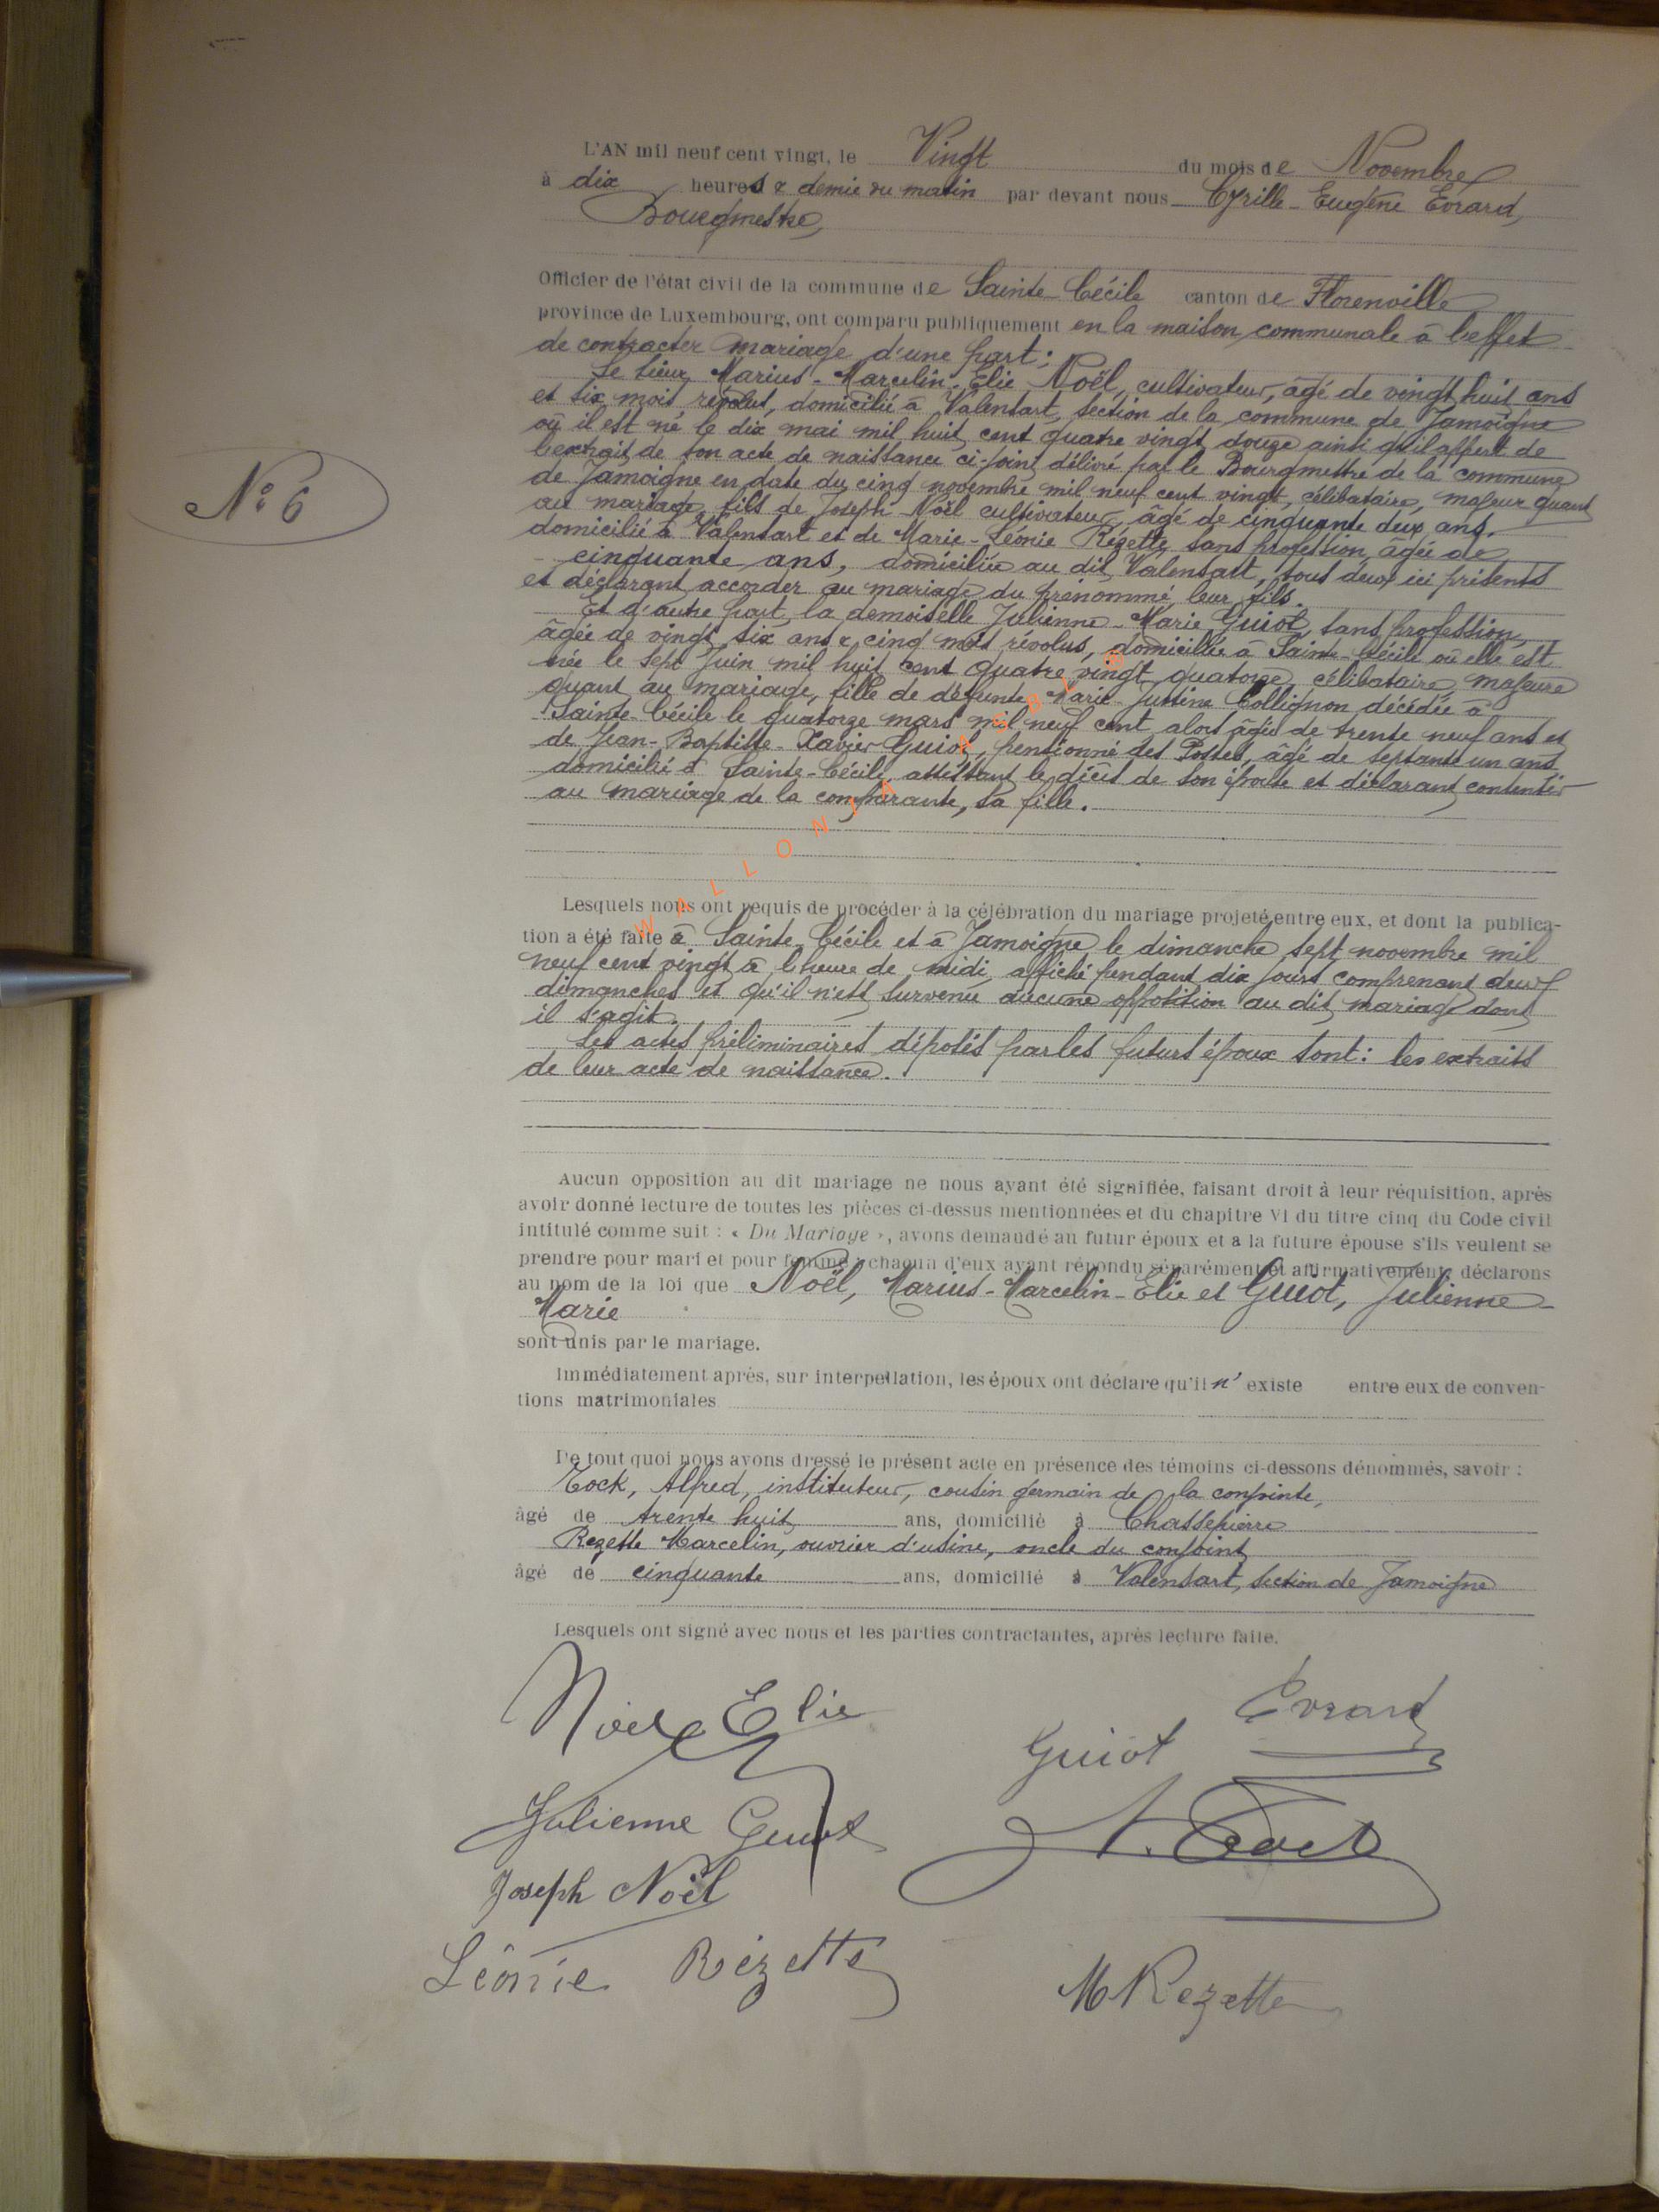 L'AN mil neuf cent vingt, le Vingt du mois de Novembre
à dix heures & demie du matin par devant nous Cyrille-Eugène Evrard,
Bourgmestre,
Officier de l'état civil de la commune de Sainte-Cécile canton de Florenville
province de Luxembourg, ont comparu publiquement en la maison communale à l'effet
de contracter mariage d'une part :
Le sieur Marius-Marcelin-Elie Noël, cultivateur, âgé de vingt huit ans
et six mois révolus, domicilié à Valensart, section de la commune de Jamoigne
où il est né le dix mai mil huit cent quatre vingt douze ainsi qu'il appert de
l'extrait de son acte de naissance ci-joint délivré par le Bourgmestre de la commune
de Jamoigne en date du cinq novembre mil neuf cent vingt, célibataire, majeur quant
au mariage, fils de Joseph Noël cultivateur, âgé de cinquante deux ans,
domicilié à Valensart et de Marie-Léonie Rézette, sans profession, âgée de
cinquante ans, domiciliée au dit Valensart, tous deux ici présents
et déclarant accorder au mariage du prénommé, leur fils.
Et d'autre part, la demoiselle Julienne-Marie Guiot, sans profession,
âgée de vingt six ans & cinq mois révolus, domiciliée à Sainte-Cécile où elle est
née le sept Juin mil huit cent quatre vingt quatorze, célibataire, majeure
quant au mariage, fille de défunte Marie-Justine Collignon décédée à
Sainte-Cécile le quatorze mars mil neuf cent alors âgée de trente neuf ans et
de Jean-Baptiste-Xavier Guiot, pensionné des Postes, âgé de septante un ans
domicilié à Sainte-Cécile, attestant le décès de son épouse et déclarant consentir
au mariage de la comparante, sa fille.
WALLONIA ASBL ©
Lesquels nous ont requis de procéder à la célébration du mariage projeté entre eux, et dont la publica-
tion a été faite à Sainte-Cécile et à Jamoigne le dimanche sept novembre mil
neuf cent vingt à l'heure de midi, affiché pendant dix jours comprenant deux
dimanches et qu'il n'est survenu aucune opposition au dit mariage dont
il s'agit.
Les actes préliminaires déposés par les futurs époux sont : les extraits
de leur acte de naissance.
Aucun opposition au dit mariage ne nous ayant été signifiée, faisant droit à leur réquisition, après
avoir donné lecture de toutes les pièces ci-dessus mentionnées et du chapitre VI du titre cinq du Code civil
intitulé comme suit : « Du Mariage », avons demandé au futur époux et a la future épouse s'ils veulent se
prendre pour mari et pour femme : chacun d'eux ayant répondu séparément et affirmativement, déclarons
au nom de la loi que Noël, Marius-Marcelin-Elie et Guiot, Julienne-
Marie
sont unis par le mariage.
Immédiatement après, sur interpellation, les époux ont déclare qu'il n' existe entre eux de conven-
tions matrimoniales
De tout quoi nous avons dressé le présent acte en présence des témoins ci-dessons dénommés, savoir :
Tock, Alfred, instituteur, cousin germain de la conjointe,
âgé de trente huit ans, domicilié à Chassepierre
Rezette Marcelin, ouvrier d'usine, oncle du conjoint
âgé de cinquante ans, domicilié à Valensart, section de Jamoigne
Lesquels ont signé avec nous et les parties contractantes, après lecture faite.
N° 6
Noël Elie
Evrard
Guiot
Julienne Guiot
A. Tock
Joseph Noël
Léonie Rézette
M Rezette